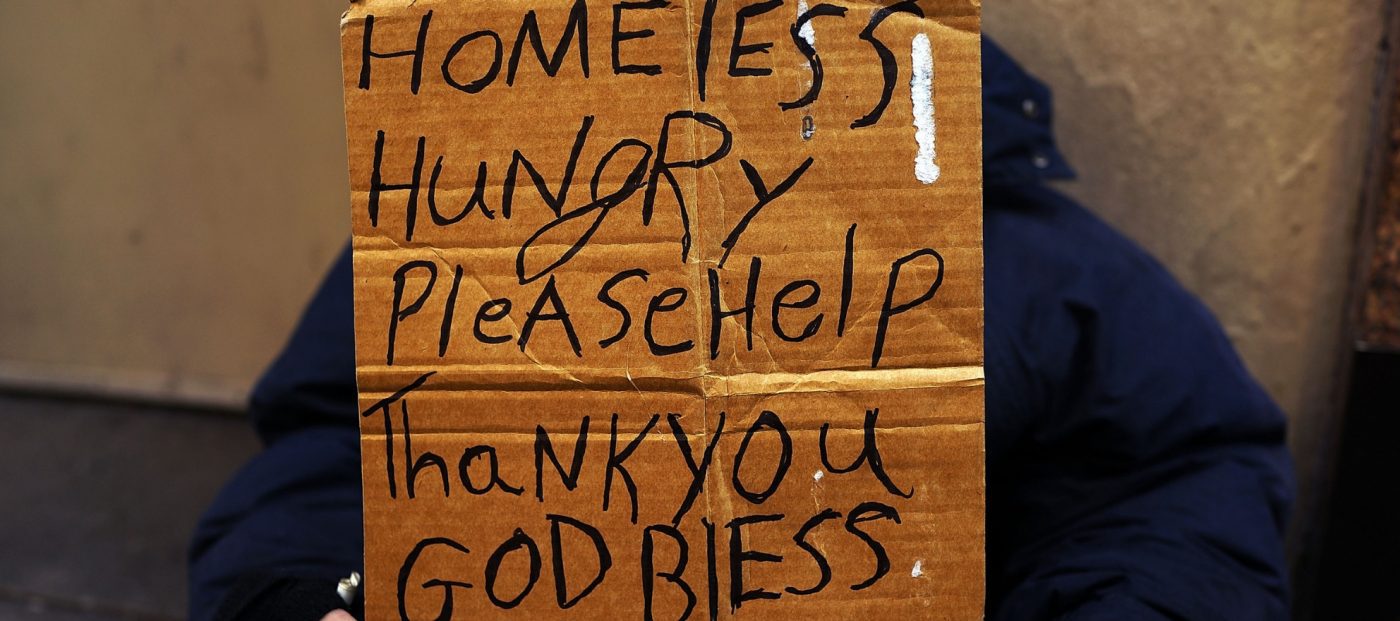 HOMElESS
HUNgRy
PleASeHelP
ThaNKyOu
GODBlESS